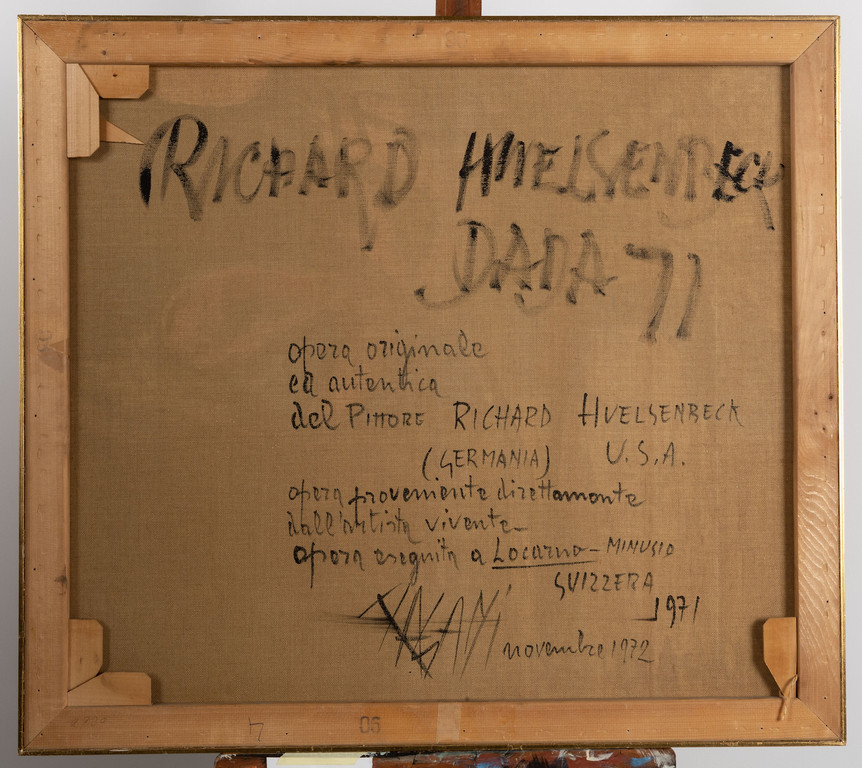 RICHARD HUELSENBECK
DADA 71
opera originale
ed autentica
del PITTORE RICHARD HUELSENBECK
(GERMANIA) U.S.A.
opera proveniente direttamente
dall'artista vivente-
opera eseguita a Locarno - MINUSIO
SVIZZERA
1971
novembre 1972
4 06